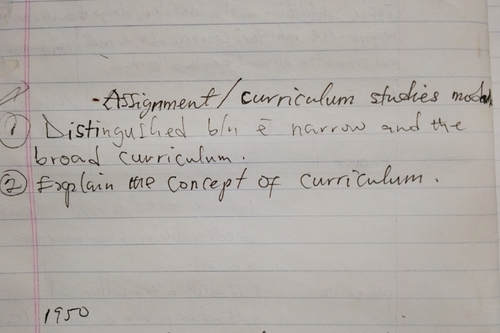 - Assignment / curriculum studies modul
① Distinguished b/n ē narrow and the
broad curriculum.
② Explain the concept of curriculum.
1950